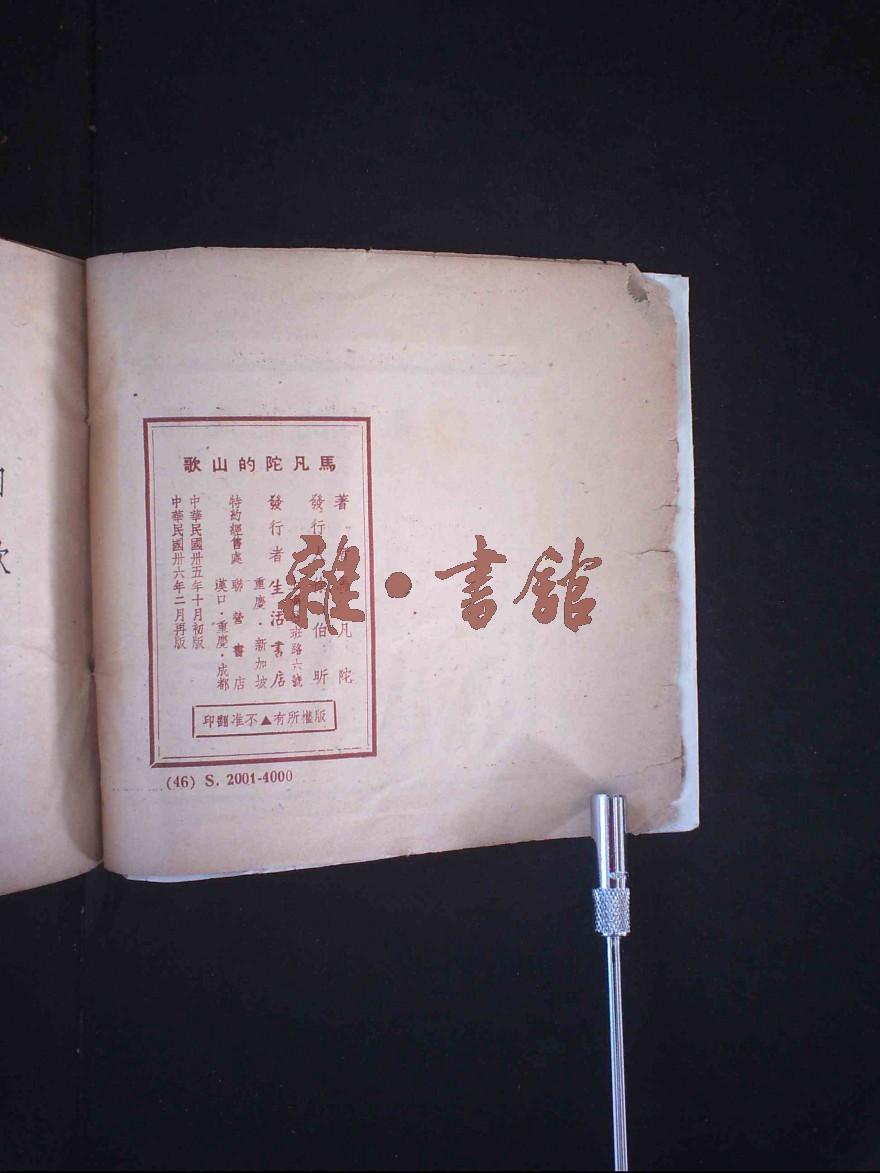 馬凡陀的山歌
著　凡　陀
發行　伯　昕
莊路六號
發行者　生活書店
重慶・新加坡
特約經售處　聯營書店
漢口・重慶・成都
中華民國卅五年十月初版
中華民國卅六年二月再版
版權所有▲不准翻印
(46) S. 2001-4000
雜・書館